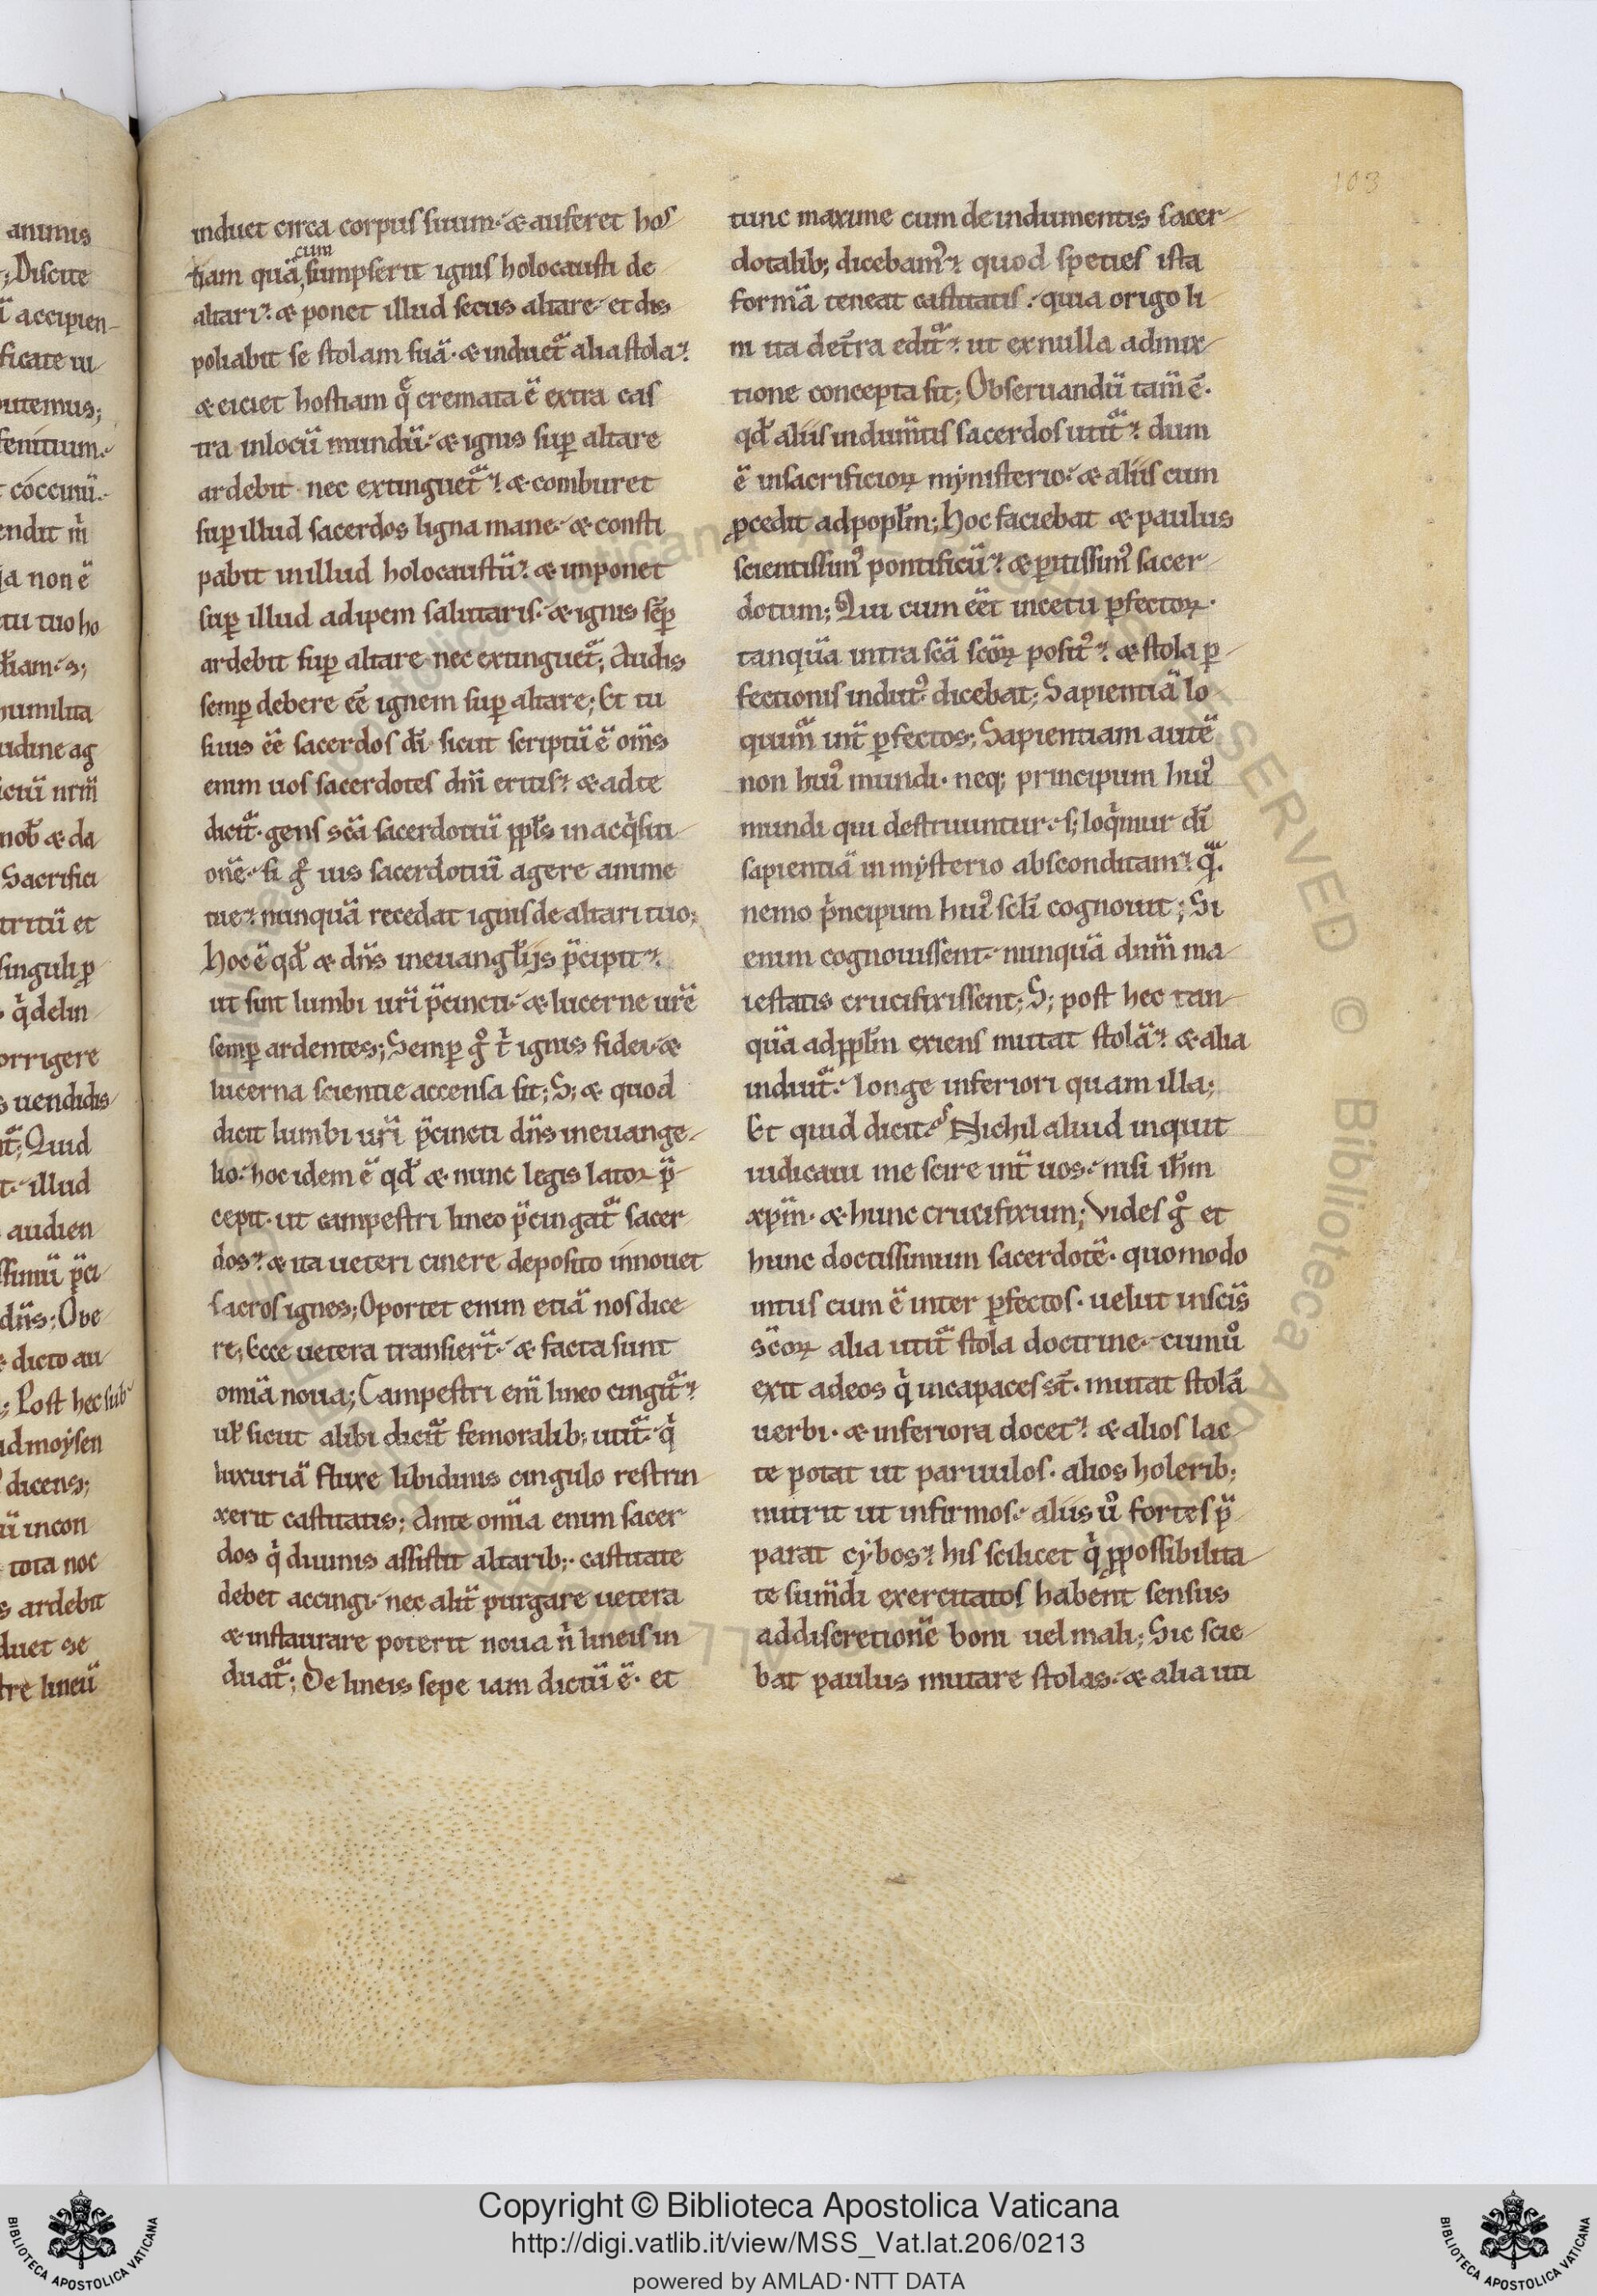 103
induet circa corpus suum. & auferet hos
tiam quã cum sumpserit ignis holocausti de
altari. & ponet illud secus altare. et dis
poliabit se stolam suã. & induet᷑ alia stola.
& eiciet hostiam q̃ cremata ẽ extra cas
tra inlocũ mundũ. & ignis suꝑ altare
ardebit nec extinguet᷑. & comburet
suꝑ illud sacerdos ligna mane. & consti
pabit inillud holocaustũ. & imponet
suꝑ illud adipem salutaris. & ignis sẽꝑ
ardebit suꝑ altare nec extinguet᷑; Audis
semꝑ debere eẽ ignem suꝑ altare; Et tu
siuis eẽ sacerdos dı̃ sicut scriptũ ẽ om̃s
enim uos sacerdotes dnı̃ eritis. & adte
dicit᷑. gens scã sacerdotiũ ppl̃s in acq̇siti
onẽ. si g̊ uis sacerdotiũ agere anime
tue. nunquã recedat ignis de altari tuo;
hoc ẽ qd̃ & dñs ineuangl̃ijs p̃cipit.
ut sint lumbi urı̃ p̃cincti. & lucerne urẽ
semꝑ ardentes; Semꝑ g̊ ṫ ignis fidei. &
lucerna scientie accensa sit; S; & quod
dicit lumbi urı̃ p̃cincti dñs ineuange
lio. hoc idem ẽ qd̃ & nunc legis lator p̃
cepit. ut campestri lineo p̃cingat᷑ sacer
dos. & ita ueteri cinere deposito innouet
sacros ignes; Oportet enim etiã nos dice
re; Ecce uetera transiert̃. & facta sunt
omĩa noua; Campestri enĩ lineo cingit᷑.
ul̃ sicut alibi dicit᷑ femoralib; utit᷑. q̇
luxuriã fluxe libidinis cingulo restrin
xerit castitatis; Ante omĩa enim sacer
dos q̇ diuinis assistit altarib;. castitate
debet accingi. nec alit̃ purgare uetera
& instaurare poterit noua ṅ lineis in
duat᷑; De lineis sepe iam dictũ ẽ. et
tunc maxime cum de indumentis sacer
dotalib; dicebam⁹. quod speties ista
formã teneat castitatis. quia origo li
ni ita det̃ra edit᷑. ut exnulla admix
tione concepta sit; Obseruandũ tam̃ ẽ.
qd̃ aliis indum̃tis sacerdos utit᷑. dum
ẽ insacrificioꝝ mẏnisterio. & aliis cum
ꝓcedit adpopl̃m; Hoc faciebat & paulus
scientissim⁹ pontificũ. & ꝑitissim⁹ sacer
dotum; Qui cum eẽt incetu ꝑfectoꝝ.
tanquã intra scã scõꝝ posit⁹. & stola ꝑ
fectionis indut⁹ dicebat; Sapientiã lo
quim᷑ int̃ ꝑfectos; Sapientiam autẽ
non hui⁹ mundi. neq; principum hui⁹
mundi qui destruuntur. s; loq̇mur dı̃
sapientiã in mẏsterio absconditam. q̃.
nemo ṗncipum hui⁹ scl̃i cognouit; Si
enim cognouissent. nunquã dnm̃ ma
iestatis crucifixissent; S; post hec tan
quã adppl̃m exiens mutat stolã. & alia
induit᷑. longe inferiori quam illa;
Et quid dicit? Nichil aliud inquit
iudicaui me scire int̃ uos. nisi ih̃m
xpm̃. & hunc crucifixum; Vides g̊ et
hunc doctissimum sacerdotẽ. quomodo
intus cum ẽ inter ꝑfectos. uelut inscı̃s
scõꝝ alia utit᷑ stola doctrine. cum ů
exit adeos q̇ incapaces st̃. mutat stolã
uerbi. & inferiora docet. & alios lac
te potat ut paruulos. alios holerib;
nutrit ut infirmos. aliis ů fortes p̃
parat cẏbos. his scilicet q̇ ꝓpossibilita
te sum̃di exercitatos habent sensus
addiscretionẽ boni uel mali; Sic scie
bat paulus mutare stolas. & alia uti
Copyright © Biblioteca Apostolica Vaticana
http://digi.vatlib.it/view/MSS_Vat.lat.206/0213
powered by AMLAD·NTT DATA
BIBLIOTECA APOSTOLICA VATICANA
BIBLIOTECA APOSTOLICA VATICANA